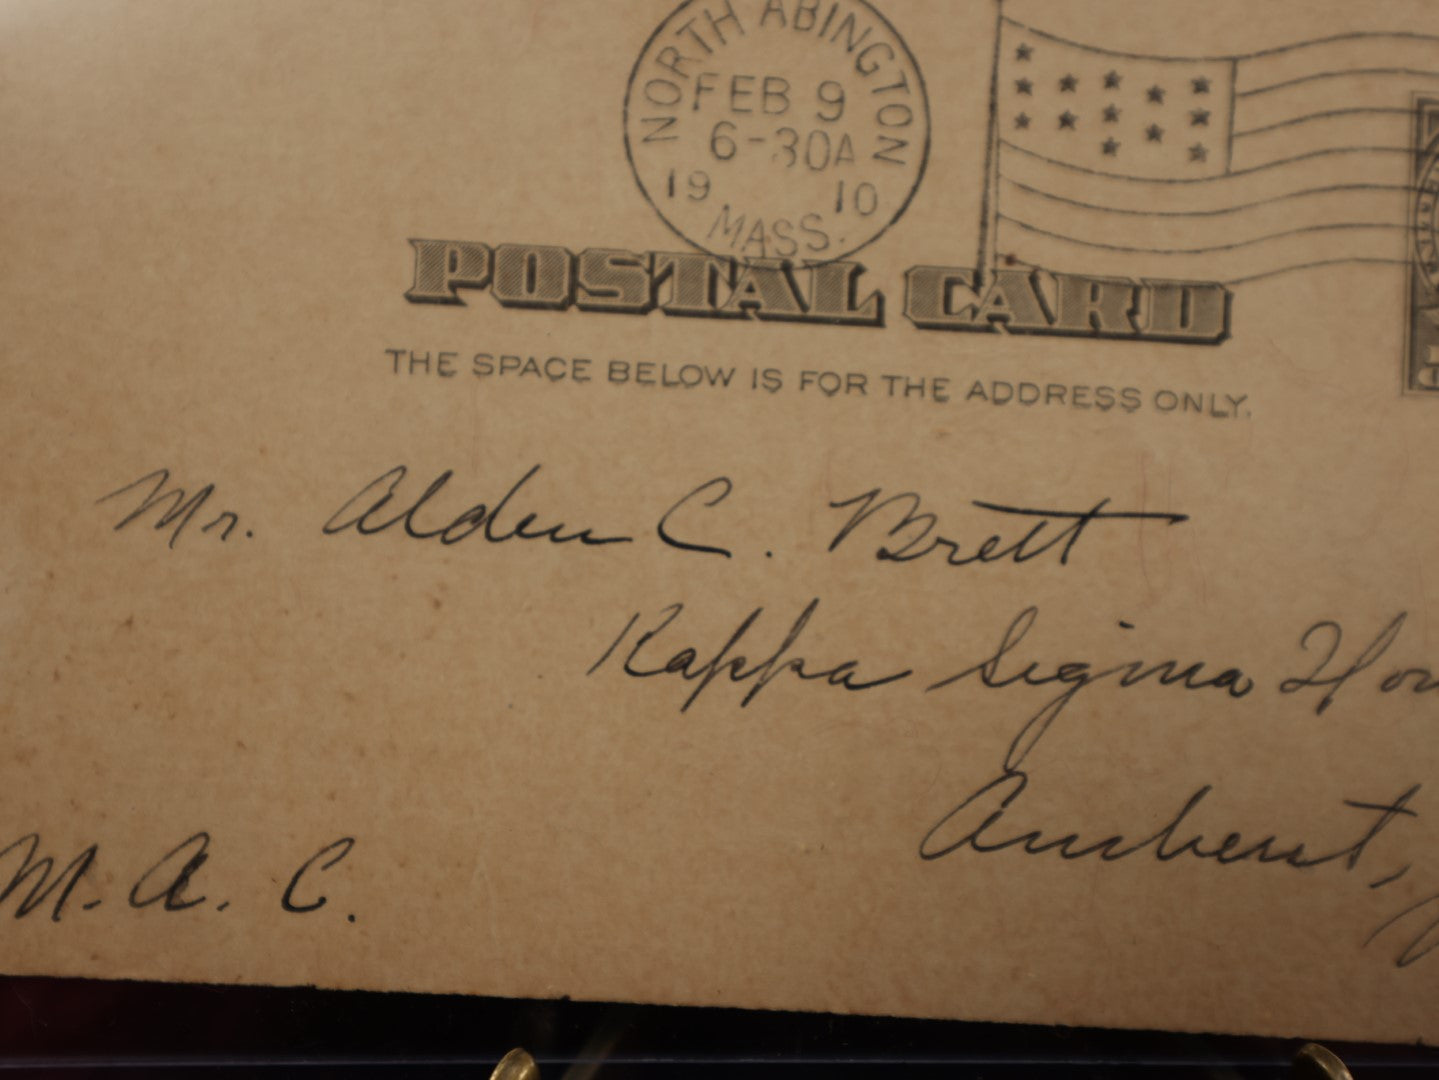 NORTH ABINGTON
FEB 9
6-30A
19 10
MASS.
POSTAL CARD
THE SPACE BELOW IS FOR THE ADDRESS ONLY.
Mr. Alden C. Brett
Kappa Sigma Hou
Amherst,
M. A. C.